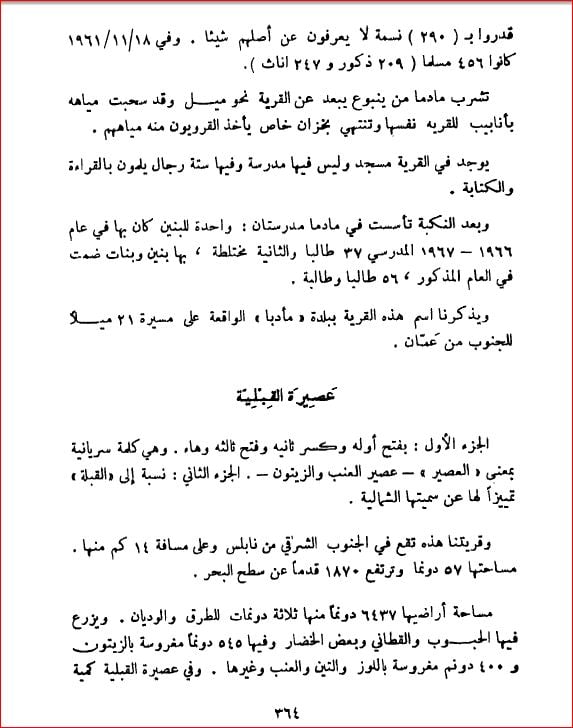 قدروا بـ ( ٢٩٠ ) نسمة لا يعرفون عن أصلهم شيئا . وفي ١٩٦١/١١/١٨
كانوا ٤٥٦ مسلما ( ٢٠٩ ذكور و ٢٤٧ اناث ).
تشرب مادما من ينبوع يبعد عن القرية نحو ميـل وقد سحبت مياهه
بأنابيب للقريه نفسها وتنتهي بخزان خاص يأخذ القرويون منه مياههم .
يوجد في القرية مسجد وليس فيها مدرسة وفيها ستة رجال يلمون بالقراءة
والكتابة .
وبعد النكبة تأسست في مادما مدرستان : واحدة للبنين كان بها في عام
١٩٦٦ – ١٩٦٧ المدرسي ٣٧ طالبا والثانية مختلطة ، بها بنين وبنات ضمت
في العام المذكور ، ٥٦ طالبا وطالبة .
ويذكرنا اسم هذه القرية ببلدة «مأدبا» الواقعة على مسيرة ٢١ ميـلا
للجنوب من عَمّان .
عَصِيرَة القِبْلِيّة
الجزء الأول : بفتح أوله وكسر ثانيه وفتح ثالثه وهاء . وهي كلمة سريانية
بمعنى « العصير » – عصير العنب والزيتون – . الجزء الثاني : نسبة إلى «القبلة»
تمييزاً لها عن سميتها الشمالية .
وقريتنا هذه تقع في الجنوب الشرقي من نابلس وعلى مسافة ١٤ كم منها .
مساحتها ٥٧ دونما وترتفع ١٨٧٠ قدماً عن سطح البحر .
مساحة أراضيها ٦٤٣٧ دونماً منها ثلاثة دونمات للطرق والوديان . ويزرع
فيها الحبـوب والقطاني وبعض الخضار وفيها ٥٤٥ دونماً مغروسة بالزيتون
و ٤٠٠ دونم مغروسة باللوز والتين والعنب وغيرها . وفي عصيرة القبلية كمية
٣٦٤